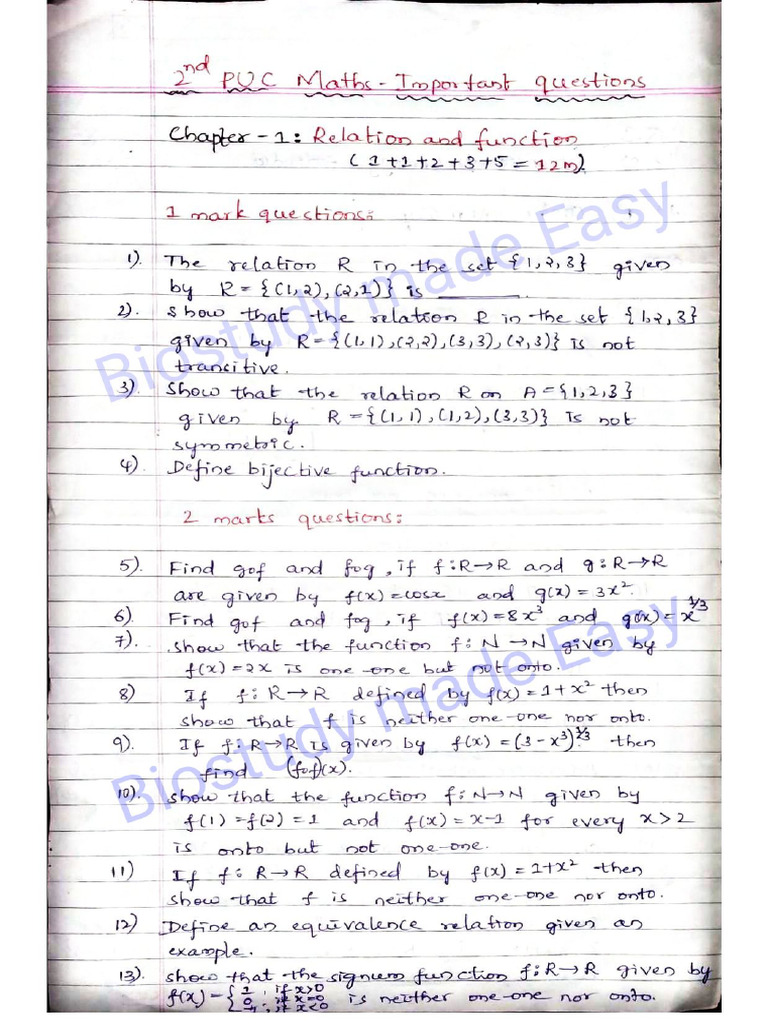 2nd PUC Maths - Important questions
Chapter - 1: Relation and function
(1+1+2+3+5 = 12m).
1 mark questions:
1). The relation R in the set {1,2,3} given
by R = {(1,2),(2,1)} is ________.
2). Show that the relation R in the set {1,2,3}
given by R={(1,1),(2,2),(3,3),(2,3)} is not
transitive.
3). Show that the relation R on A={1,2,3}
given by R={(1,1),(1,2),(3,3)} is not
symmetric.
4). Define bijective function.
2 marks questions:
5). Find gof and fog, if f:R→R and g:R→R
are given by f(x)=cosx and g(x)=3x².
6). Find gof and fog, if f(x)=8x³ and g(x)=x^1/3
7). Show that the function f:N→N given by
f(x)=2x is one-one but not onto.
8) If f:R→R defined by f(x)=1+x² then
show that f is neither one-one nor onto.
9). If f:R→R is given by f(x)=(3-x³)^1/3 then
find (fof)(x).
10). Show that the function f:N→N given by
f(1)=f(2)=1 and f(x)=x-1 for every x>2
is onto but not one-one.
11) If f:R→R defined by f(x)=1+x² then
show that f is neither one-one nor onto.
12) Define an equivalence relation given an
example.
13). Show that the signum function f:R→R given by
f(x)={1, if x>0
0, if x=0
-1, if x<0 is neither one-one nor onto.
Biostudy made Easy
Biostudy made Easy